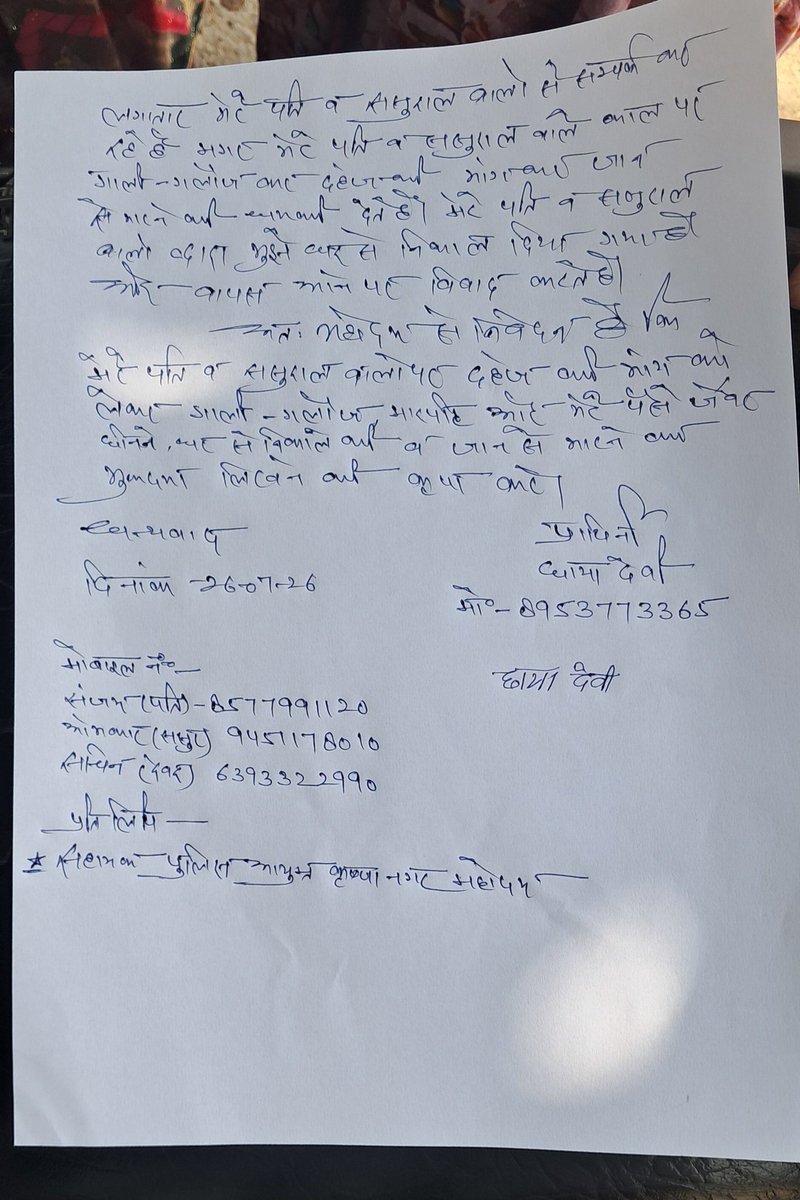 लगातार मेरे पति व ससुराल वालो से सम्पर्क कर
रहे है मगर मेरे पति व ससुराल वाले काल पर
गाली-गलौज कर दहेज की मांग कर जान
से मारने की धमकी देते है। मेरे पति व ससुराल
वालो द्वारा मुझे घर से निकाल दिया गया है
और वापस आने पर विवाद करते है।
अतः महोदय से निवेदन है कि
मेरे पति व ससुराल वालो पर दहेज की मांग को
लेकर गाली-गलौज, मारपीट और मेरे पैसे जेवर
छीनने, घर से निकाले की व जान से मारने का
मुकदमा लिखने की कृपा करे।
धन्यवाद
प्रार्थिनी
छाया देवी
दिनांक -26-07-26
मो०- 8953773365
मोबाइल नं०-
छाया देवी
संजय (पति) - 8577991120
ओमकार (ससुर) 9451178010
सचिन (देवर) 6393322990
प्रतिलिपि —
* सहायक पुलिस आयुक्त कृष्णा नगर महोदय